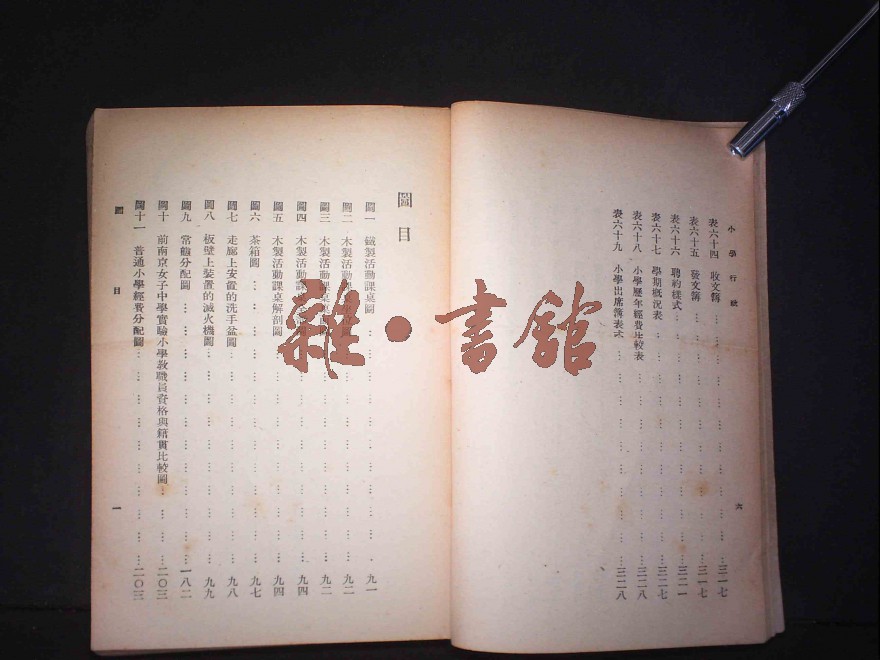 小學行政
表六十四 收文簿……三一七
表六十五 發文簿……三一七
表六十六 聘約樣式……三二一
表六十七 學期概況表……三二七
表六十八 小學歷年經費比較表……三二八
表六十九 小學出席簿表式……三二八
六
圖目
圖一 鐵製活動課桌圖……九一
圖二 木製活動課桌圖……九二
圖三 木製活動課桌圖……九二
圖四 木製活動課桌圖……九四
圖五 木製活動課桌解剖圖……九四
圖六 茶箱圖……九七
圖七 走廊上安置的洗手盆圖……九八
圖八 板壁上裝置的滅火機圖……九九
圖九 常識分配圖……一八二
圖十 前南京女子中學實驗小學教職員資格與籍貫比較圖……二〇三
圖十一 普通小學經費分配圖……二〇三
圖目
一
雜·書館